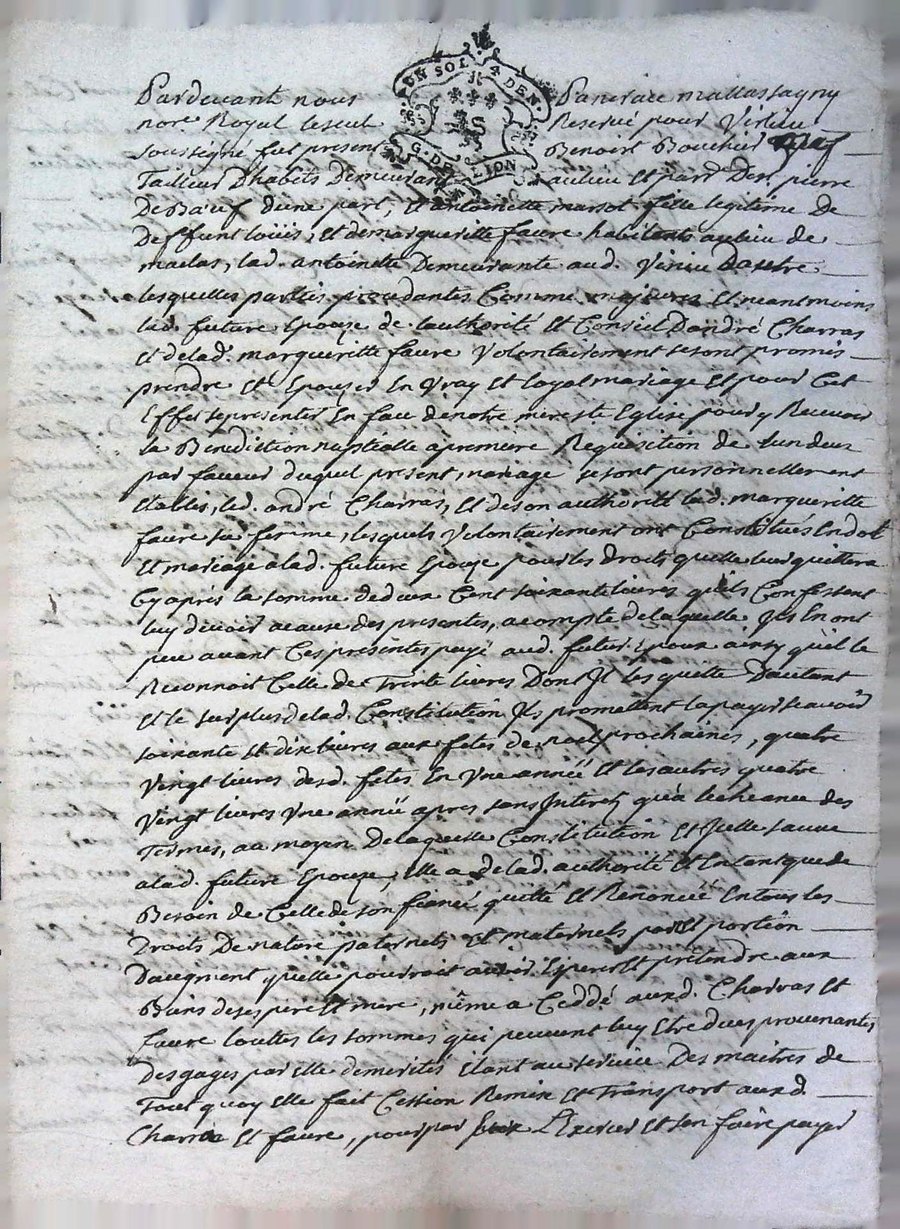 UN SOL 4 DEN.
G. DE LION
Pardevant nous Pancrace mallassagny
nore. Royal Reservé pour Virieu
soussigné fut present Benoist Bouchier
Tailleur Dhabits Demeurant aulieu et parr. De st. pierre
De Bœuf d'une part, Et antoinette marsot fille legitime de
Deffunt loüis, Et demargueritte faure habitants aulieu de
malas, lad. antoinette Demeurante aud. Virieu Dautre
lesquelles parties procedantes Comme majeures Et neantmoins
lad. future Epouze de l'authorité Et Conseil D'andré Charras
Et delad. margueritte faure Volontairement se sont promis
prendre Et Epouzer En Vray Et loyal mariage Et pour Cet
Effet se presenter En face denotre mere ste Eglise pour y Recevoir
la Benediction nuptialle a premiere Requisition de lun deux
par faveur duquel present mariage se sont personnellement
Etablis, led. andré Charras, Et de son authorité lad. margueritte
faure sa femme, lesquels Volontairement ont Constitués Endot
Et mariage alad. future Epouze pour les droits quelle leur quittera
Cy après la somme dedeux Cent soixante livres quils Confessent
luy devoir acause des presentes, acompte delaquelle Ils En ont
peu avant Ces presentes payé aud. futur Epoux ainsy quil le
Reconnoit Celle de Trente livres Dont Il les quitte D'autant
Et le surplus delad. Constitution Ils promettent la payer scavoir
soixante Et dix livres aux fetes de noel prochaines, quatre
Vingt livres desd. fetes En Vne année Et les autres quatre
Vingt livres Vne année apres sans Interet qu'a lecheance des
Termes, au moyen Delaquelle Constitution Et Icelle sauve
alad. future Epouze, Elle a delad. authorité Et Entant que de
Besoin de Celle de son fiancé quitté Et Renoncé Entous les
Droits De nature paternels Et maternels part Et portion
Daugment quelle pourroit avoir Esperer Et prétendre aux
Biens deses pere Et mere, même a Ceddé auxd. Charras Et
faure toutes les sommes qui peuvent luy Etre dues provenantes
des gages par Elle demerités Etant au service Des maitres de
Tout quoy Elle fait Cession Remise Et Transport auxd.
Charras Et faure, pour par Eux L'Exercer Et sen faire payer